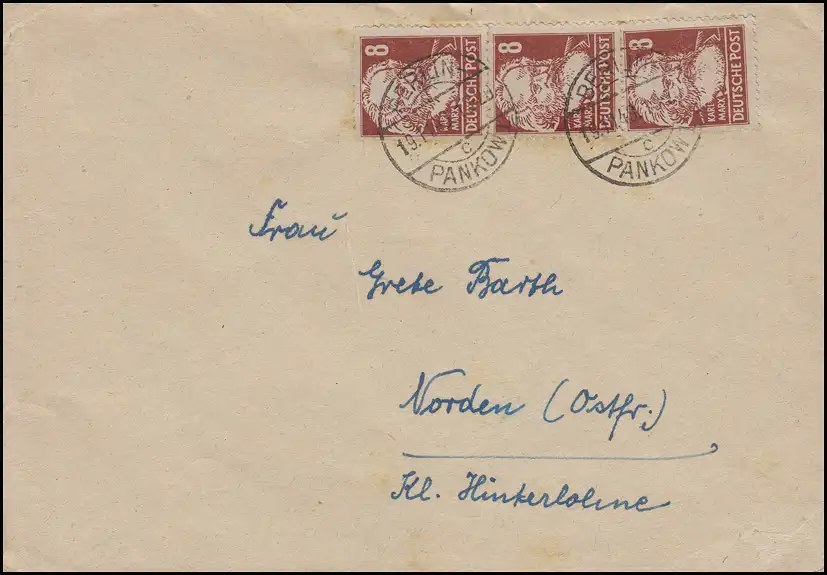 8 KARL MARX DEUTSCHE POST
8 KARL MARX DEUTSCHE POST
8 KARL MARX DEUTSCHE POST
BERLIN
c
PANKOW
BERLIN
c
PANKOW
Frau
Grete Barth
Norden (Ostfr.)
Kl. Hinterlohne